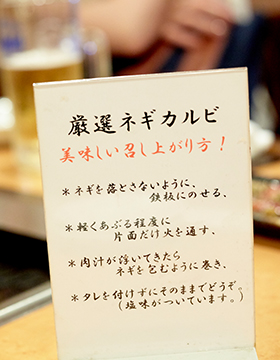 厳選ネギカルビ
美味しい召し上がり方！
＊ネギを落とさないように、
鉄板にのせる、
＊軽くあぶる程度に
片面だけ火を通す、
＊肉汁が浮いてきたら
ネギを包むように巻き、
＊タレを付けずにそのままでどうぞ。
（塩味がついています。）